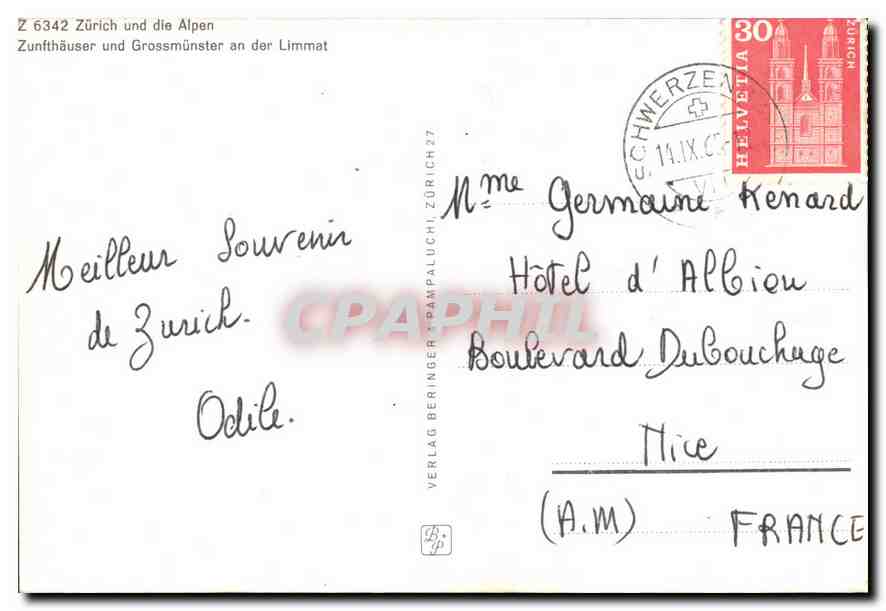 Z 6342 Zürich und die Alpen
Zunfthäuser und Grossmünster an der Limmat
Meilleur Souvenir
de Zurich.
Odile.
VERLAG BERINGER & PAMPALUCHI, ZÜRICH 27
B.P
CPAPHIL
30
HELVETIA
ZÜRICH
SCHWERZEN
14.IX.6
Mme Germaine Renard
Hôtel d'Albion
Boulevard Dubouchage
Nice
(A.M) FRANCE